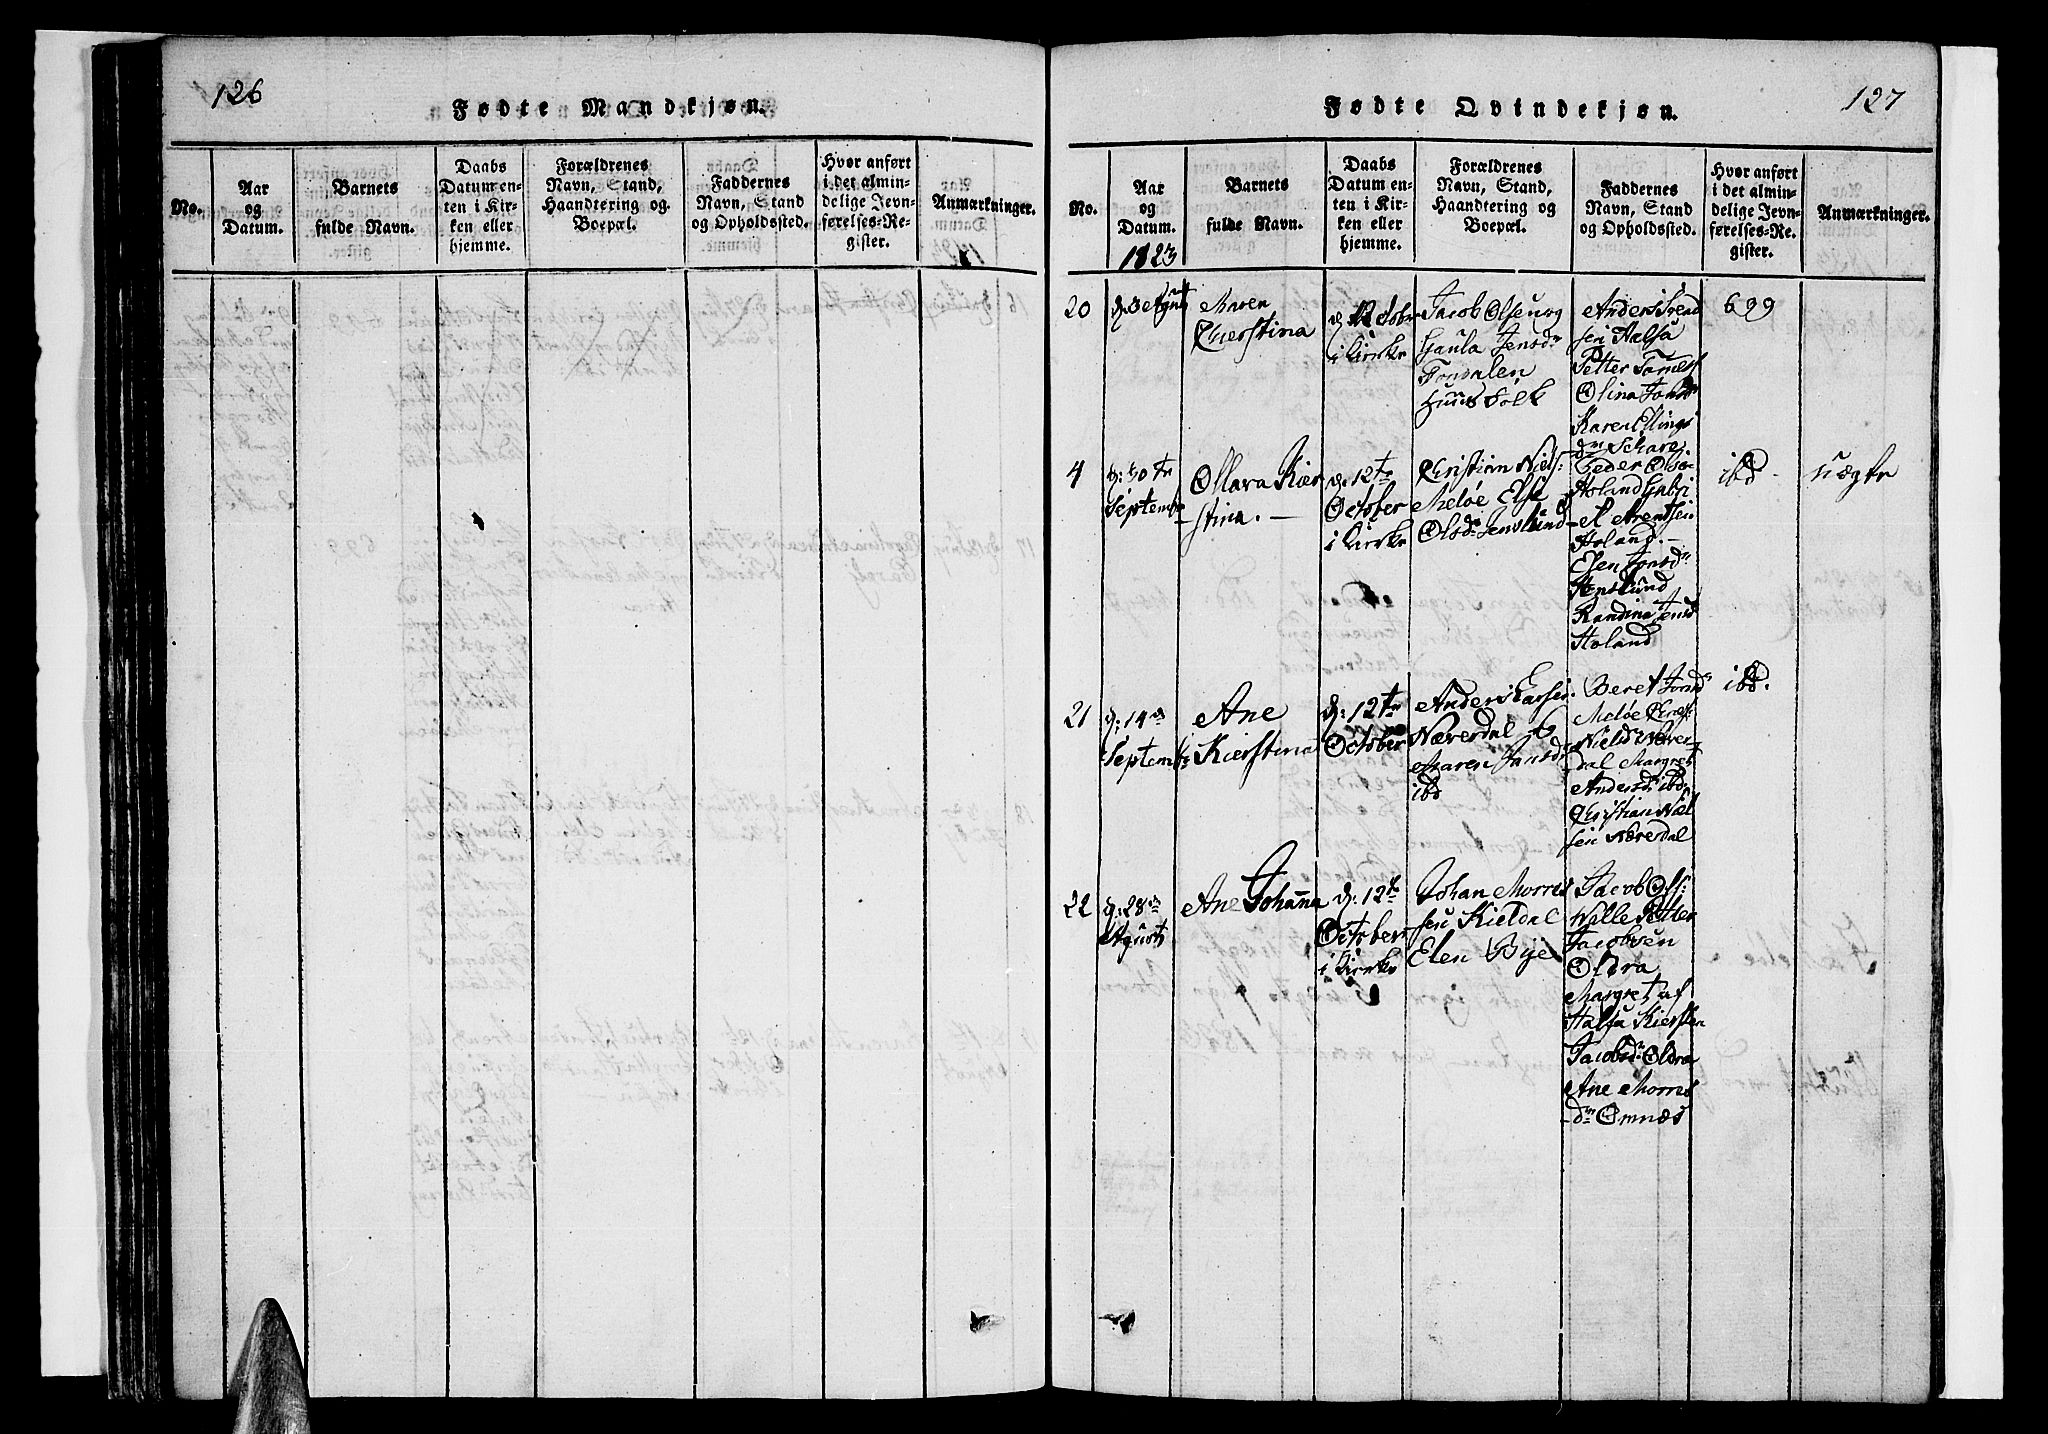 126
Fødte Mandkjøn.
No.
Aar
og
Datum.
Barnets
fulde Navn.
Daabs
Datum en-
ten i Kir-
ken eller
hjemme.
Forældrenes
Navn, Stand,
Haandtering og
Boepæl.
Faddernes
Navn, Stand
og Opholdssted.
Hvor anført
i det almin-
delige Jevn-
førelses-Re-
gister.
Anmærkninger.
127
Fødte Qvindekjøn.
No.
Aar
og
Datum.
1823
Barnets
fulde Navn.
Daabs
Datum en-
ten i Kir-
ken eller
hjemme.
Forældrenes
Navn, Stand,
Haandtering og
Boepæl.
Faddernes
Navn, Stand
og Opholdssted.
Hvor anført
i det almin-
delige Jevn-
førelses-Re-
gister.
Anmærkninger.
20
Maren
Cherstina
i Kirke
Jacob Olsen og
Jensdr
Huus Folk
Anders Svend
sen Halsa
Petter
Olina
Karen Ellings
dr
699
4
d: 30te
Septembr
Ollara Kier
stina. —
d: 12te
October
i Kirke
Christian Niels:
Meløe Else
Olsdr Jenslund
Peder Ols:
Holand Gabri
el Arentsen
Holand. —
Elen Jonsdr
Jenslund
Randina Jensd
Holand
ibd.
uægte
21
d: 14de
Septembr
Ane
Kierstina
d: 12te
October
Anders Larsen.
Næverdal &
Maren Jansdr
ibd
Beret Jonsdr
Meløe
Nielsd: Næver-
dal Margret
Andersd: ibd.
Christian Niel
sen Næverdal
ibd.
22
d: 28de
Agust
Ane Johanna
d: 12te
October
i Kirke
Johan Morred
sen Kieldal
Elen Bye
Jacob Ols:
Valle Petter
Jacobsen
Oldra
Margret af
Halsa Kiersten
Jacobsdr Oldra
Ane Morred
dr Ømnæs